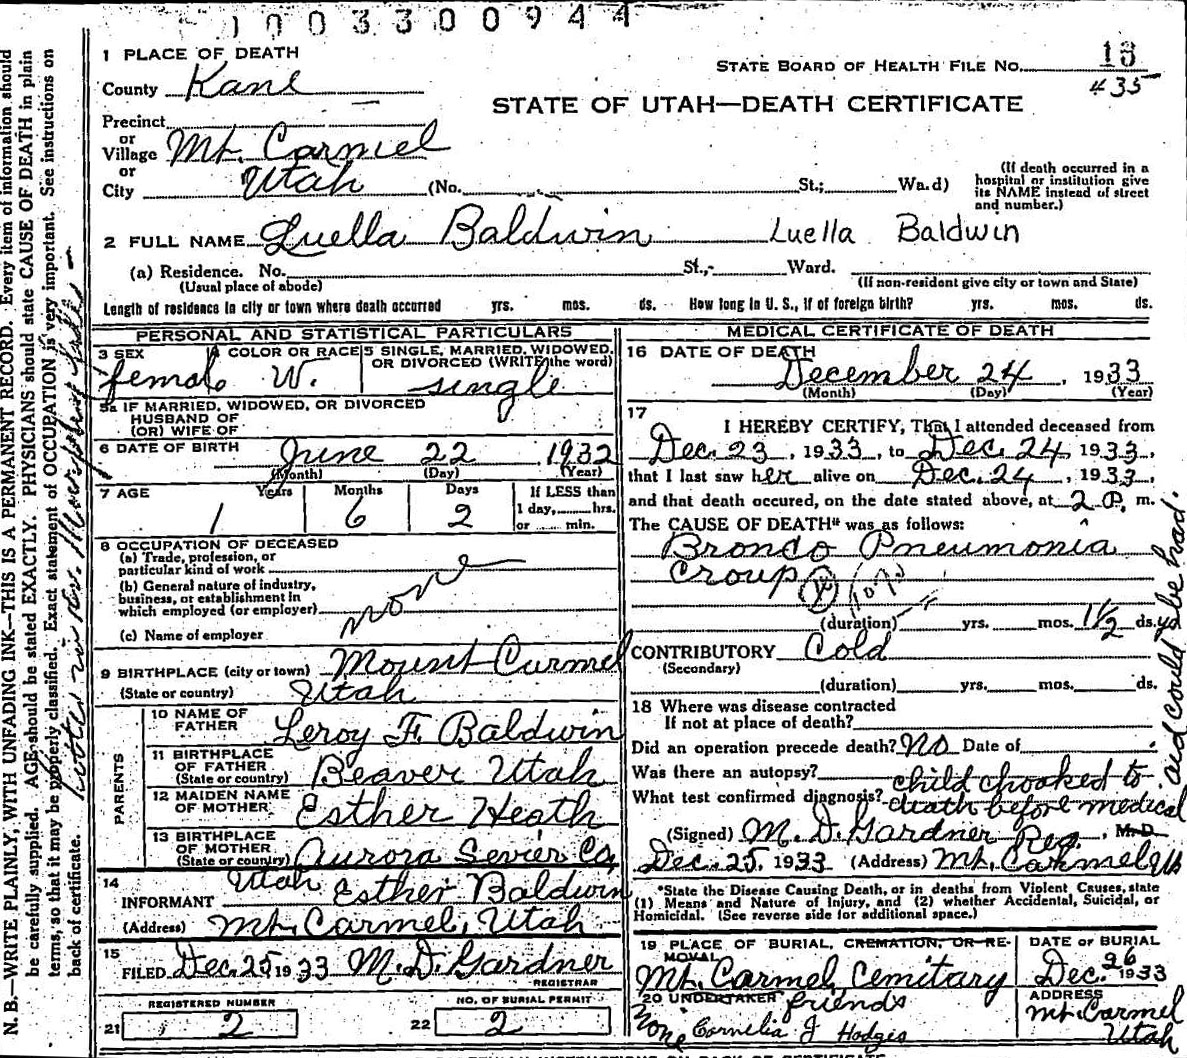 1003300944
1 PLACE OF DEATH
County Kane
STATE BOARD OF HEALTH FILE NO. 13
435
STATE OF UTAH—DEATH CERTIFICATE
Precinct
or
Village Mt. Carmel
or
City Utah (No. St.; Ward)
(If death occurred in a
hospital or institution give
its NAME instead of street
and number.)
2 FULL NAME Luella Baldwin Luella Baldwin
(a) Residence. No. St., Ward.
(Usual place of abode) (If non-resident give city or town and State)
Length of residence in city or town where death occurred yrs. mos. ds. How long in U. S., if of foreign birth? yrs. mos. ds.
PERSONAL AND STATISTICAL PARTICULARS
3 SEX 4 COLOR OR RACE 5 SINGLE, MARRIED, WIDOWED,
OR DIVORCED (WRITE the word)
female W. single
5a IF MARRIED, WIDOWED, OR DIVORCED
HUSBAND OF
(OR) WIFE OF
6 DATE OF BIRTH June 22 1932
(Month) (Day) (Year)
7 AGE Years Months Days If LESS than
1 day, hrs.
or min.
1 6 2
8 OCCUPATION OF DECEASED
(a) Trade, profession, or
particular kind of work
(b) General nature of industry,
business, or establishment in
which employed (or employer)
none
(c) Name of employer
9 BIRTHPLACE (city or town) Mount Carmel
(State or country) Utah
PARENTS
10 NAME OF
FATHER Leroy F. Baldwin
11 BIRTHPLACE
OF FATHER
(State or country) Beaver Utah
12 MAIDEN NAME
OF MOTHER Esther Heath
13 BIRTHPLACE
OF MOTHER
(State or country) Aurora Sevier Co,
Utah
14
INFORMANT Esther Baldwin
(Address) Mt. Carmel, Utah
15
FILED Dec. 25 1933 M. D. Gardner
REGISTRAR
REGISTERED NUMBER NO. OF BURIAL PERMIT
21 2 22 2
MEDICAL CERTIFICATE OF DEATH
16 DATE OF DEATH
December 24, 1933
(Month) (Day) (Year)
17
I HEREBY CERTIFY, That I attended deceased from
Dec. 23, 1933, to Dec. 24, 1933,
that I last saw her alive on Dec. 24, 1933,
and that death occured, on the date stated above, at 2 P. m.
The CAUSE OF DEATH* was as follows:
Bronco Pneumonia
Croup
107a
(duration) yrs. mos. 1½ ds.
CONTRIBUTORY Cold
(Secondary)
(duration) yrs. mos. ds.
18 Where was disease contracted
If not at place of death?
Did an operation precede death? No Date of
Was there an autopsy?
What test confirmed diagnosis? child chooked to
death before medical
aid could be had.
(Signed) M. D. Gardner Reg., M. D.
Dec. 25, 1933 (Address) Mt. Carmel Ut
*State the Disease Causing Death, or in deaths from Violent Causes, state
(1) Means and Nature of Injury, and (2) whether Accidental, Suicidal, or
Homicidal. (See reverse side for additional space.)
19 PLACE OF BURIAL, CREMATION, OR RE-
MOVAL
Mt. Carmel Cemitary
DATE OF BURIAL
Dec. 26 1933
20 UNDERTAKER friends
None Cornelia J Hodges
ADDRESS
Mt. Carmel
Utah
N. B.—WRITE PLAINLY, WITH UNFADING INK—THIS IS A PERMANENT RECORD. Every item of information should
be carefully supplied. AGE should be stated EXACTLY. PHYSICIANS should state CAUSE OF DEATH in plain
terms, so that it may be properly classified. Exact statement of OCCUPATION is very important. See instructions on
back of certificate.